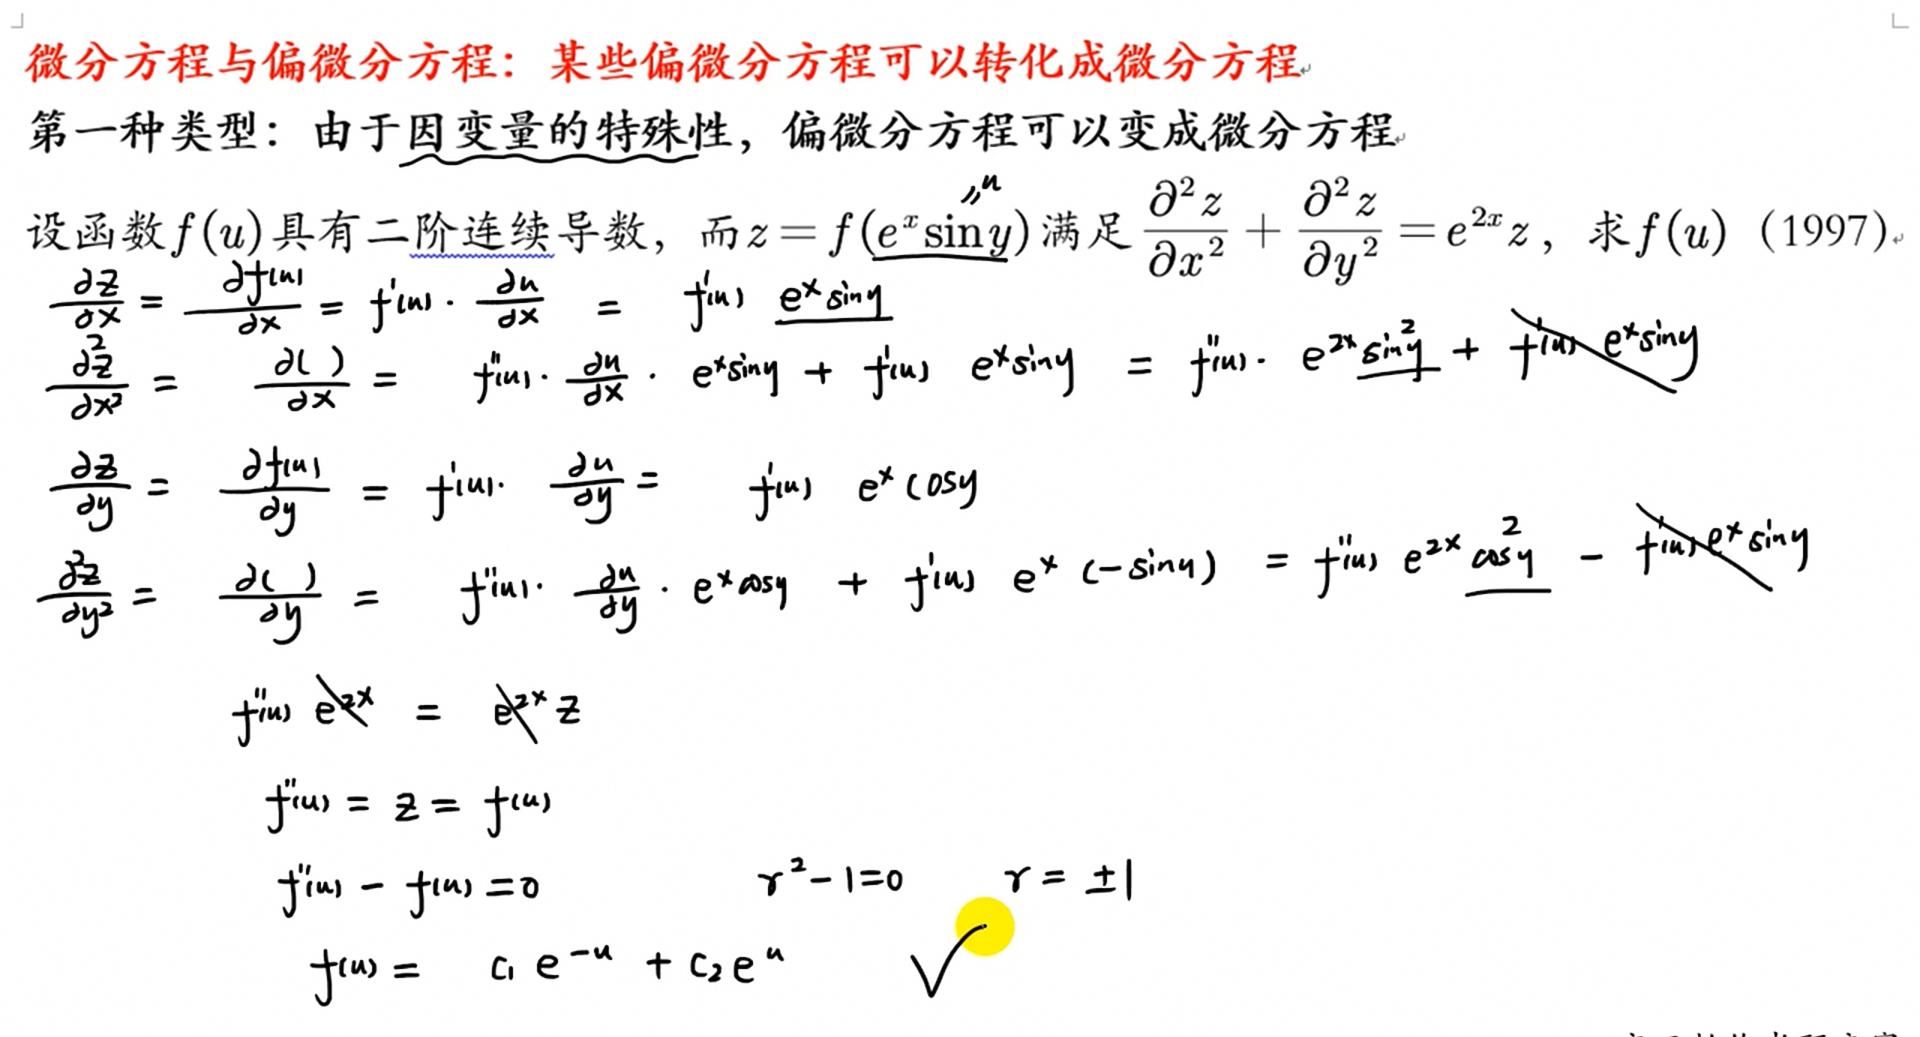 微分方程与偏微分方程：某些偏微分方程可以转化成微分方程
第一种类型：由于因变量的特殊性，偏微分方程可以变成微分方程
"u
设函数f(u)具有二阶连续导数，而z=f(e^x sin y)满足 ∂²z/∂x² + ∂²z/∂y² = e^{2x}z，求f(u)（1997）
∂z/∂x = ∂f(u)/∂x = f'(u)·∂u/∂x = f'(u) e^x siny
∂²z/∂x² = ∂( )/∂x = f''(u)·∂u/∂x·e^x siny + f'(u) e^x siny = f''(u)·e^{2x} sin²y + f'(u) e^x siny
∂z/∂y = ∂f(u)/∂y = f'(u)·∂u/∂y = f'(u) e^x cosy
∂²z/∂y² = ∂( )/∂y = f''(u)·∂u/∂y·e^x cosy + f'(u) e^x (-siny) = f''(u) e^{2x} cos²y - f'(u) e^x siny
f''(u) e^{2x} = e^{2x} z
f''(u) = z = f(u)
f''(u) - f(u) = 0 r²-1=0 r = ±1
f(u) = c₁e^{-u} + c₂e^u √